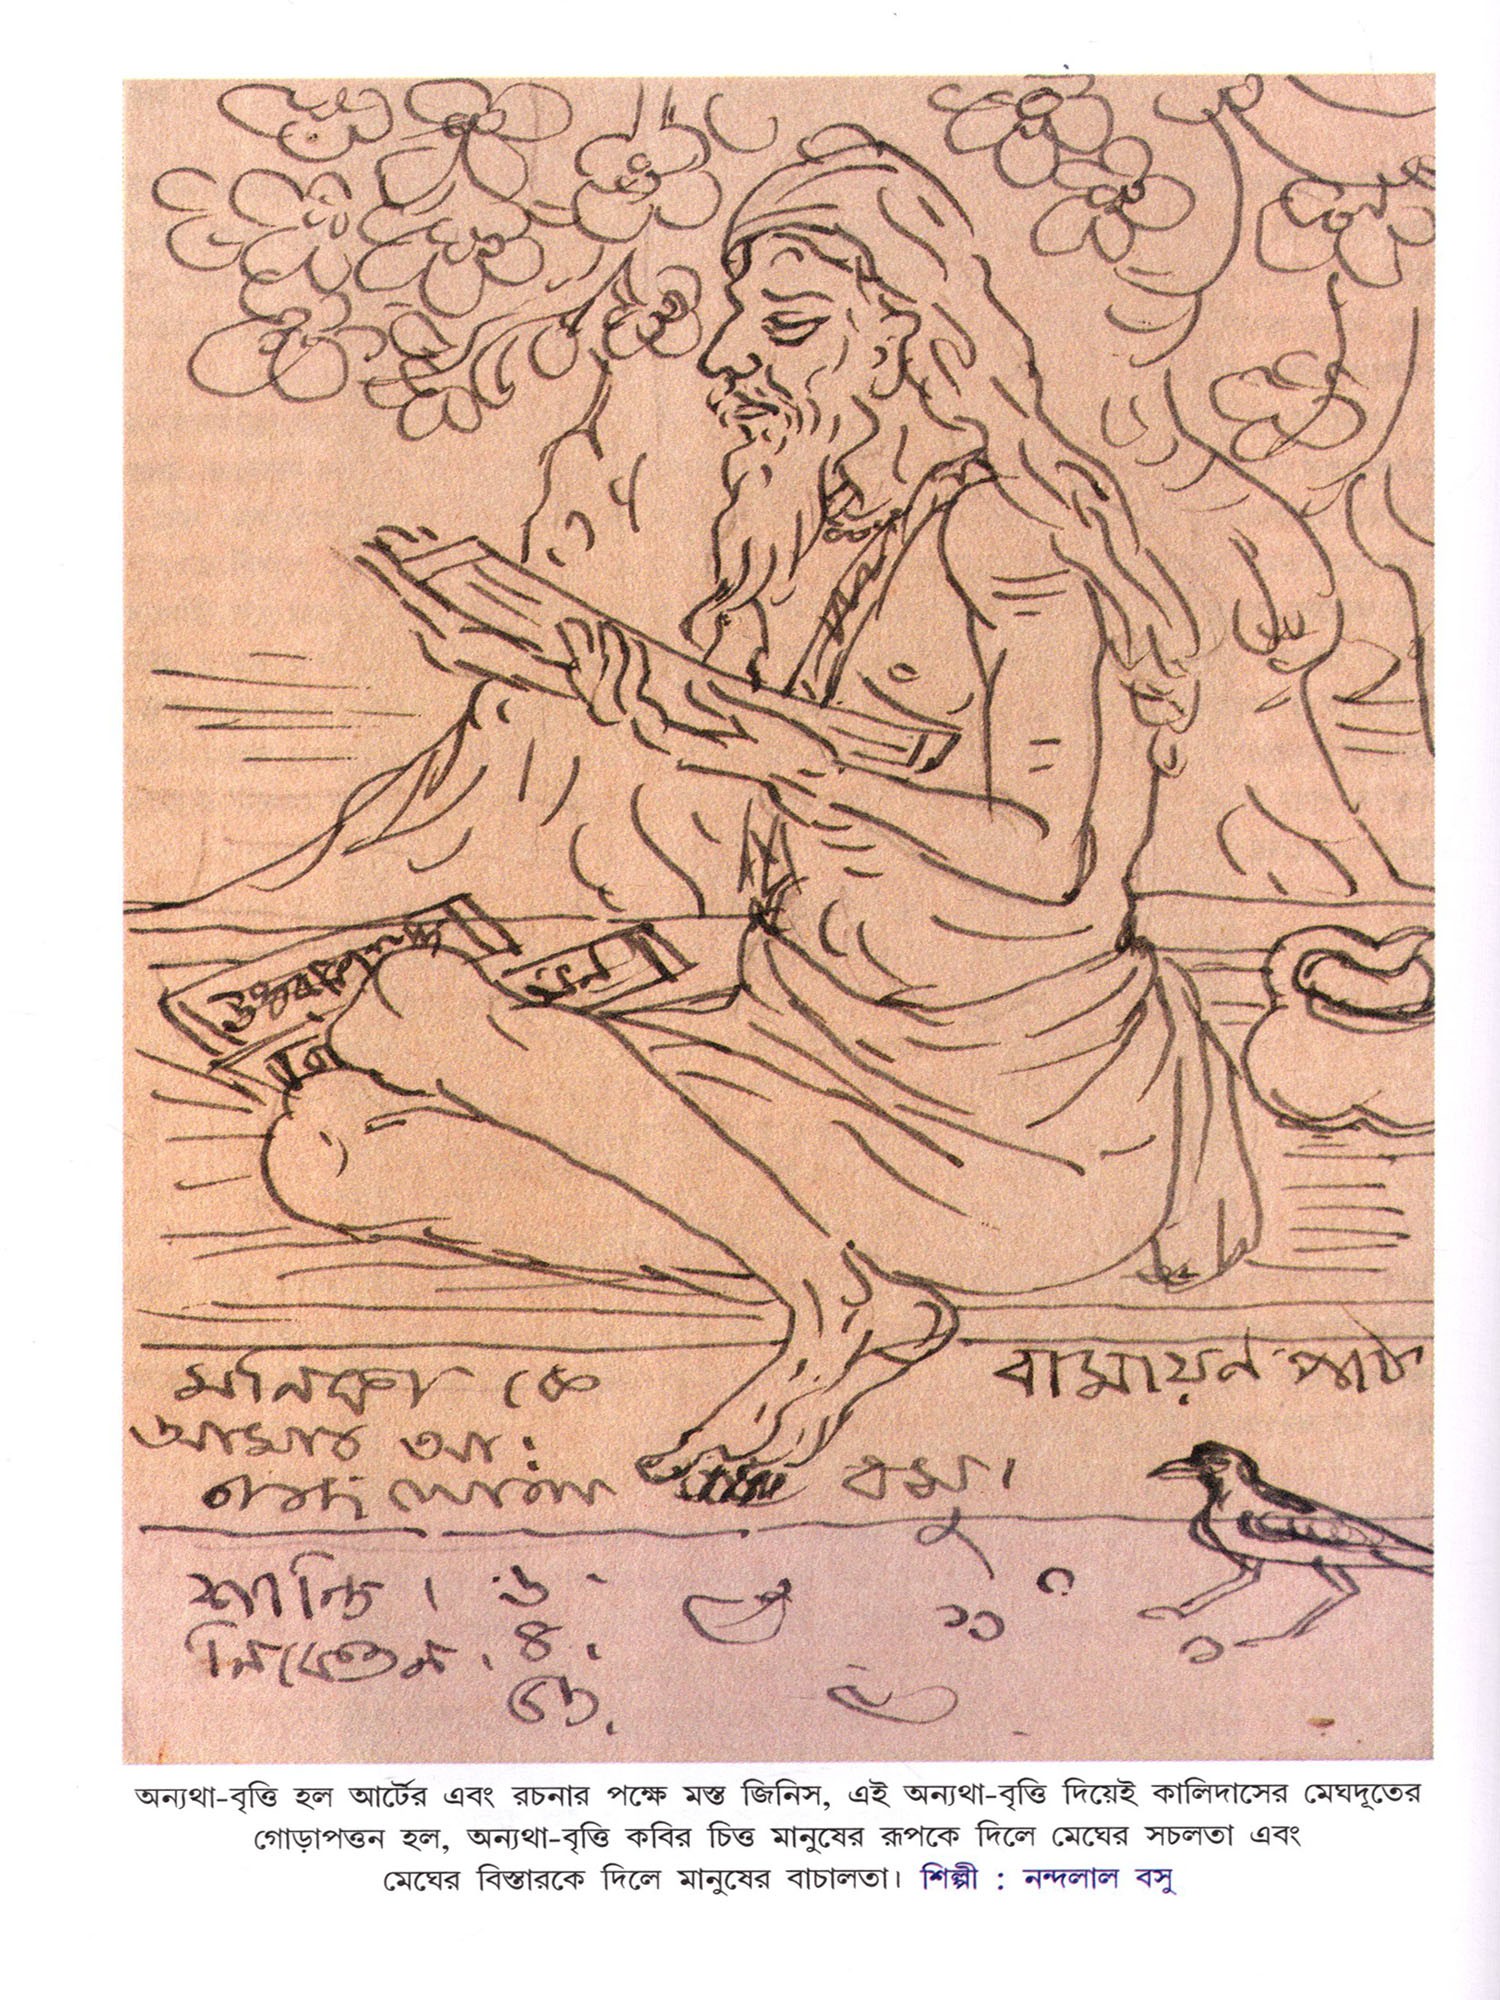 মনিকা কে
রামায়ন পাঠ
আমার আ:
বসু।
শান্তি।
নিকেতন।
অন্যথা-বৃত্তি হল আর্টের এবং রচনার পক্ষে মস্ত জিনিস, এই অন্যথা-বৃত্তি দিয়েই কালিদাসের মেঘদূতের
গোড়াপত্তন হল, অন্যথা-বৃত্তি কবির চিত্ত মানুষের রূপকে দিলে মেঘের সচলতা এবং
মেঘের বিস্তারকে দিলে মানুষের বাচালতা। শিল্পী : নন্দলাল বসু